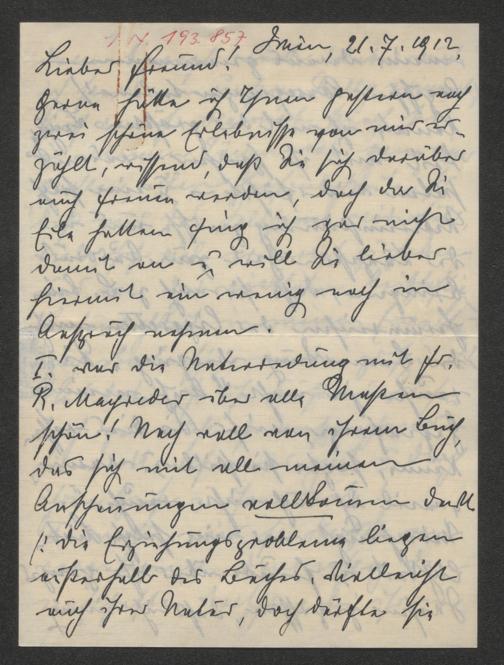 I N 193.857
Wien, 21.7.1912.
Lieber Freund!
Gerne hätte ich Ihnen gestern noch
zwei schöne Erlebnisse von mir er-
zählt, wissend, daß Sie sich darüber
auch freuen werden, doch da Sie
Eile hatten fing ich gar nicht
damit an u. will Sie lieber
hiermit ein wenig noch in
Anspruch nehmen.
I. war die Unterredung mit Fr.
R. Mayreder über alle Maßen
schön! Noch voll von ihrem Buch,
das sich mit all meinen
Anschauungen vollkommen deckt
(: die Erziehungsprobleme liegen
außerhalb des Buches, vielleicht
auch ihrer Natur, doch dürfte sie